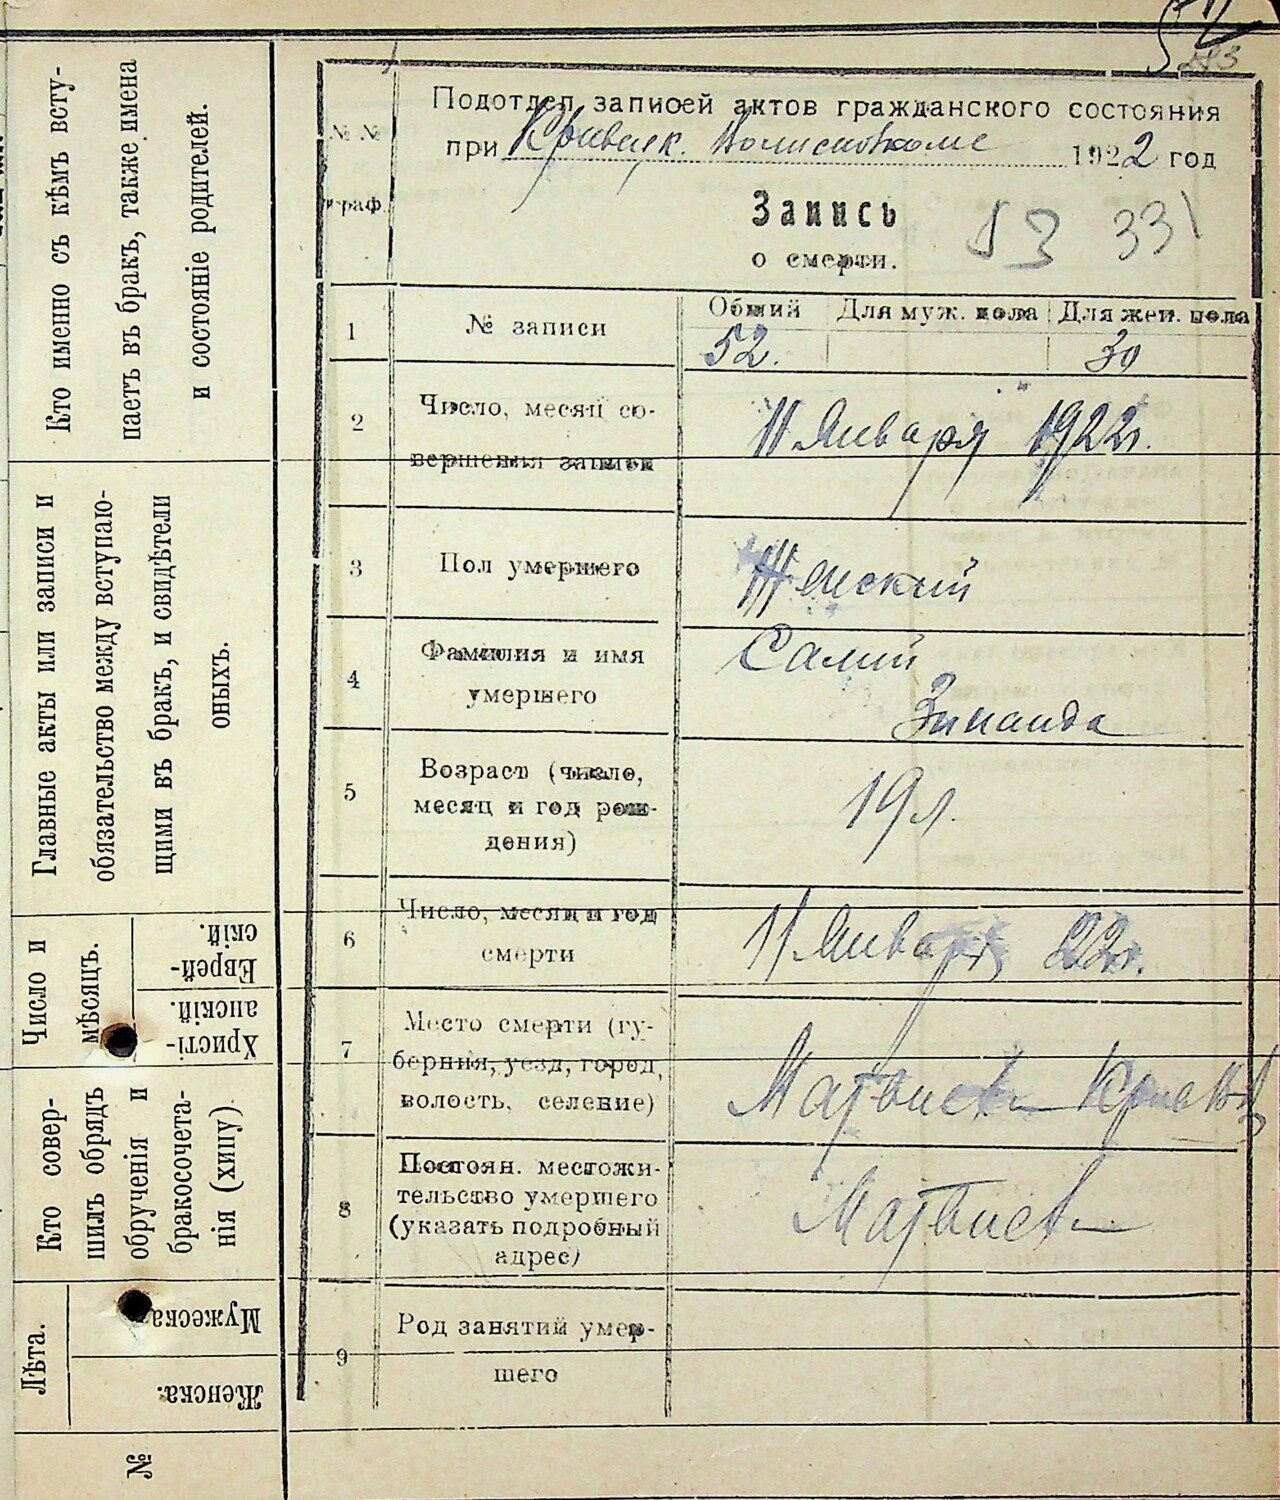 Кто именно съ кѣмъ всту-
паетъ въ бракъ, также имена
и состояніе родителей.
Главные акты или записи и
обязательство между вступаю-
щими въ бракъ, и свидѣтели
оныхъ.
Число и
мѣсяцъ.
Еврей-
скій.
Христі-
анскій.
Кто совер-
шилъ обрядъ
обрученія и
бракосочета-
нія (хипу)
Лѣта.
Мужеска.
Женска.
№
№ №
граф.
Подотдел записей актов гражданского состояния
при 1922 год
Запись
53 331
о смерти.
1 № записи
Общий Для муж. пола Для жен. пола
52. 30
2 Число, месяц со-
вершения записи
11 Января 1922г.
3 Пол умершего
Женский
4 Фамилия и имя
умершего
Салий
Зинаида
5 Возраст (число,
месяц и год рож-
дения)
19 л.
6 Число, месяц и год
смерти
11 Января 22г.
7 Место смерти (гу-
берния, уезд, город,
волость, селение)
8 Постоян. местожи-
тельство умершего
(указать подробный
адрес)
9 Род занятий умер-
шего